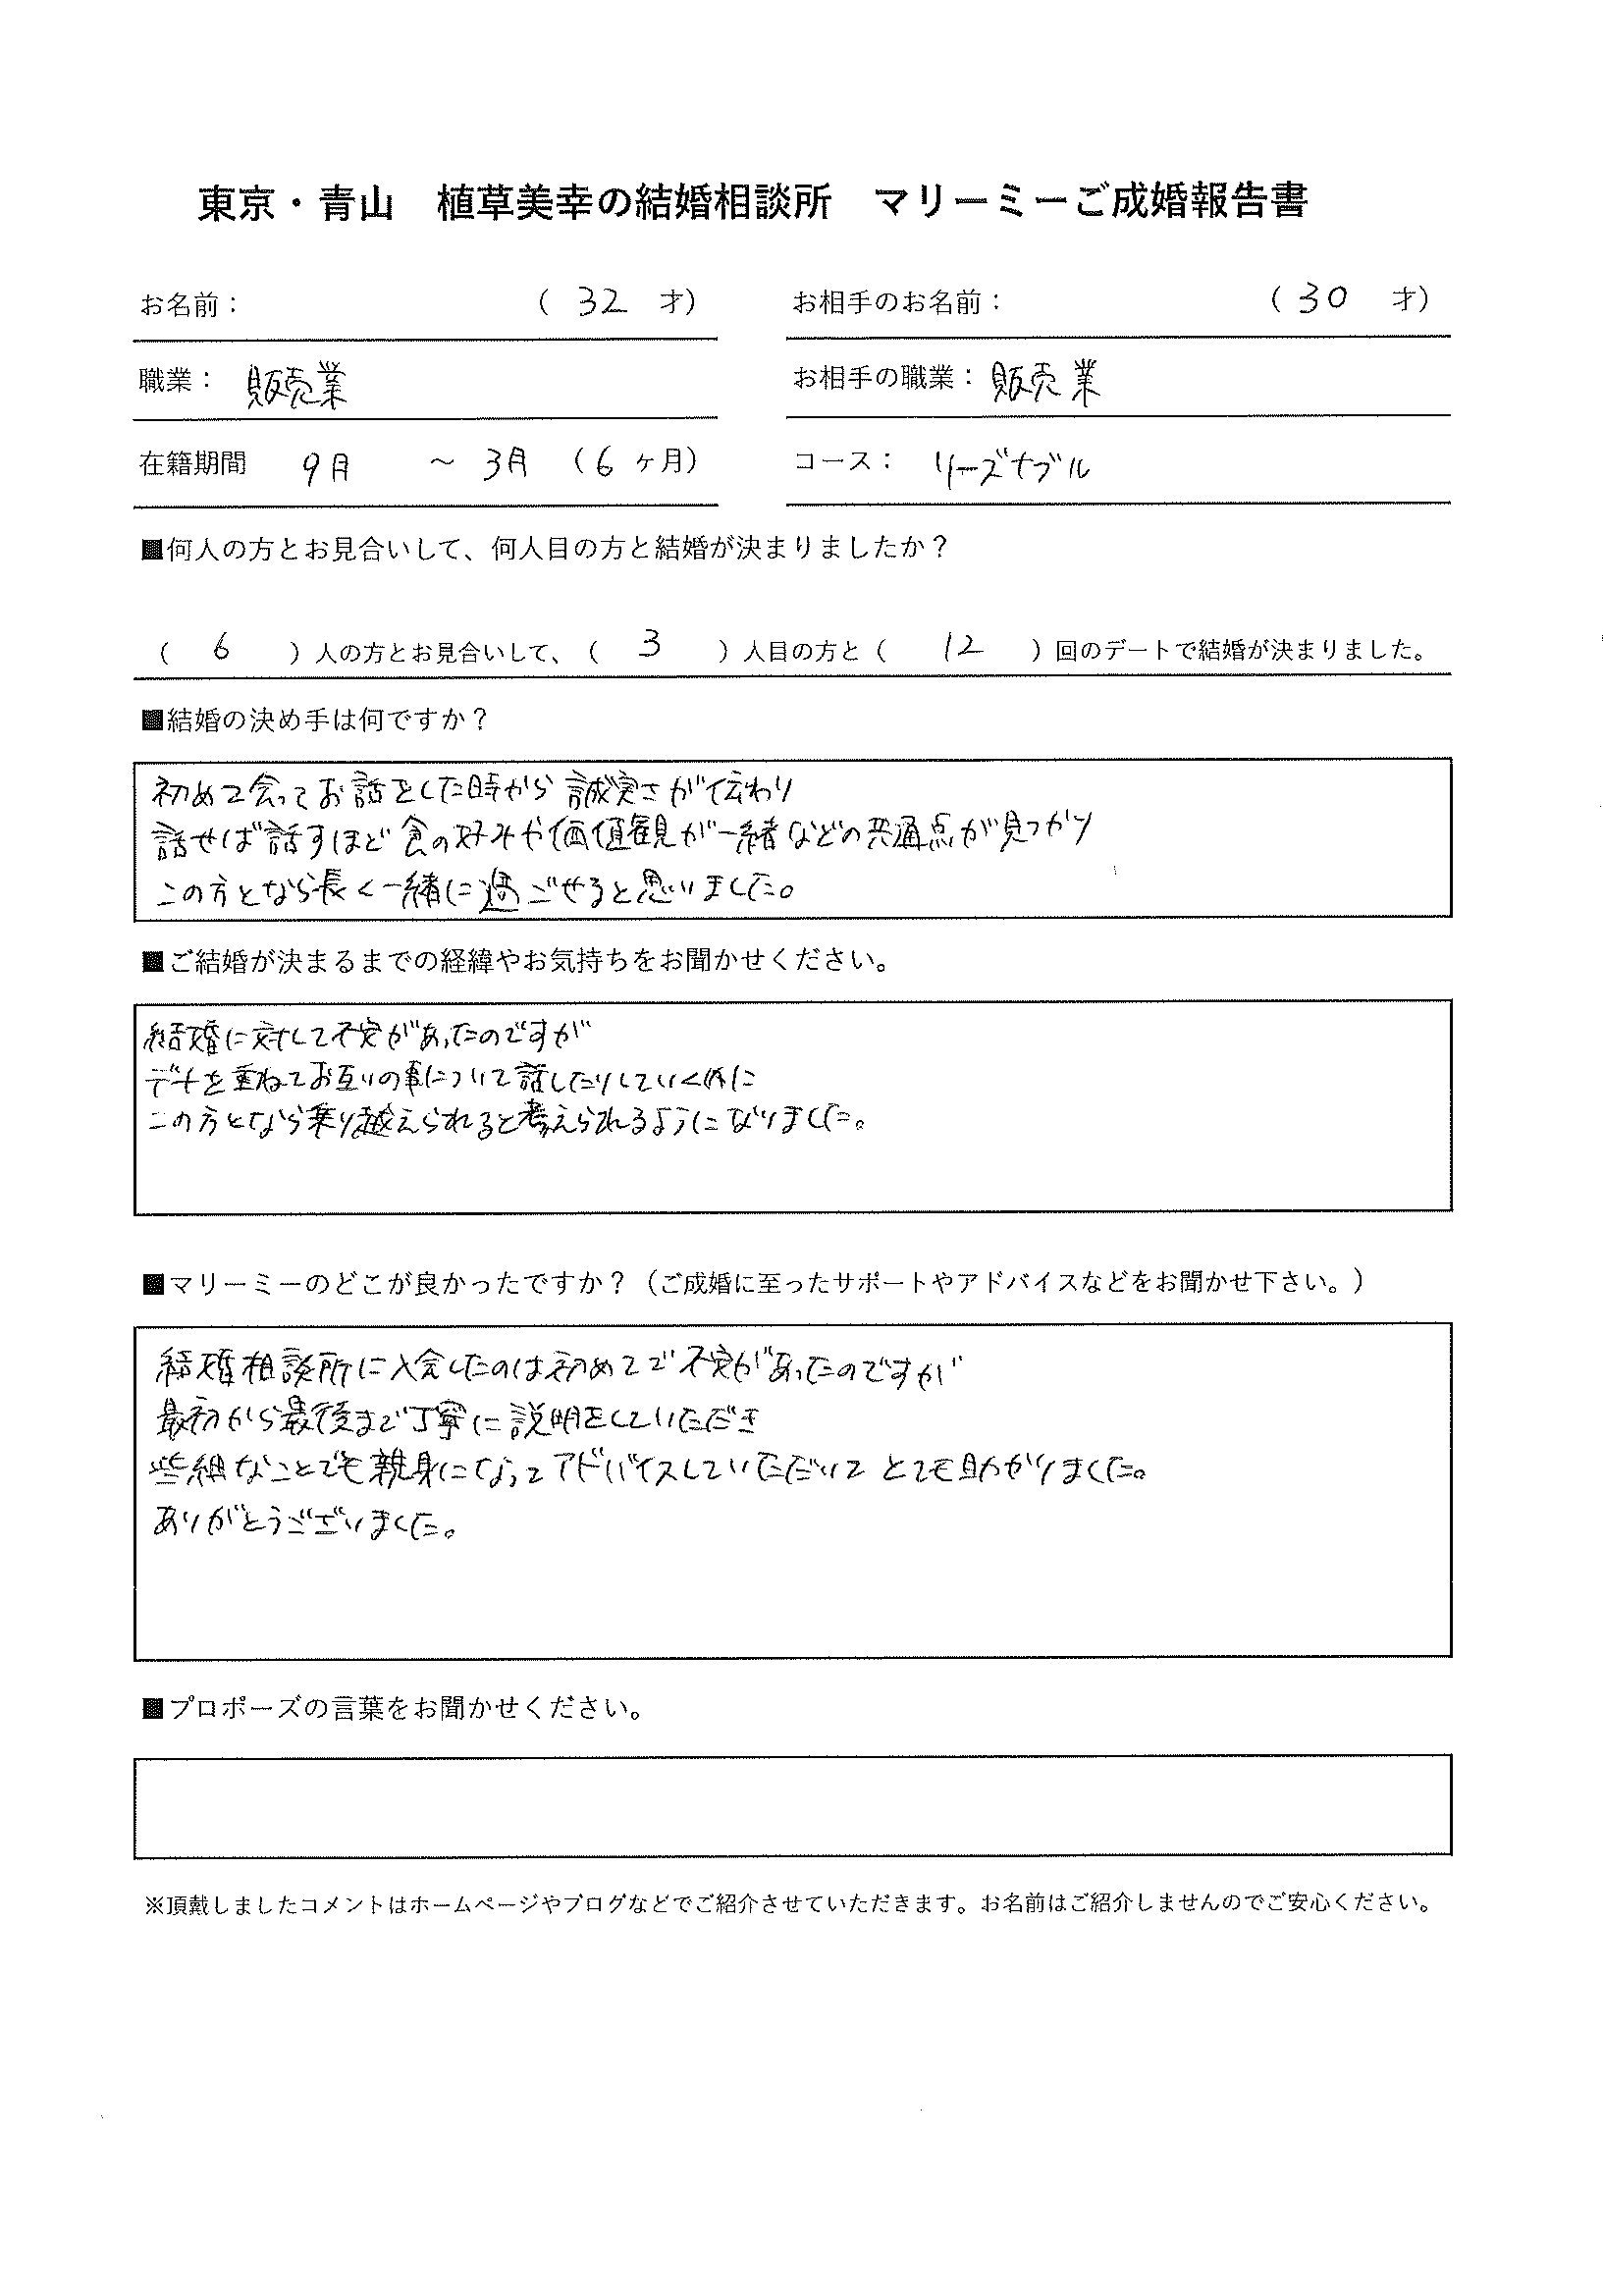 東京・青山　植草美幸の結婚相談所　マリーミーご成婚報告書
お名前：　（ 32 才）　お相手のお名前：　（ 30 才）
職業：販売業　お相手の職業：販売業
在籍期間　9月　～　3月　（6 ヶ月）　コース：　リーズナブル
■何人の方とお見合いして、何人目の方と結婚が決まりましたか？
（　6　）人の方とお見合いして、（　3　）人目の方と（　12　）回のデートで結婚が決まりました。
■結婚の決め手は何ですか？
初めて会ってお話をした時から誠実さが伝わり
話せば話すほど食の好みや価値観が一緒などの共通点が見つかり
この方となら長く一緒に過ごせると思いました。
■ご結婚が決まるまでの経緯やお気持ちをお聞かせください。
結婚に対して不安があったのですが
デートを重ねてお互いの事について話したりしていく内に
この方となら乗り越えられると考えられるようになりました。
■マリーミーのどこが良かったですか？（ご成婚に至ったサポートやアドバイスなどをお聞かせ下さい。）
結婚相談所に入会したのは初めてで不安があったのですが
最初から最後まで丁寧に説明をしていただき
些細なことでも親身になってアドバイスしていただいてとても助かりました。
ありがとうございました。
■プロポーズの言葉をお聞かせください。
※頂戴しましたコメントはホームページやブログなどでご紹介させていただきます。お名前はご紹介しませんのでご安心ください。